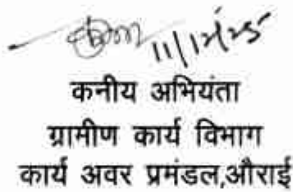 11/12/25
कनीय अभियंता
ग्रामीण कार्य विभाग
कार्य अवर प्रमंडल,औराई